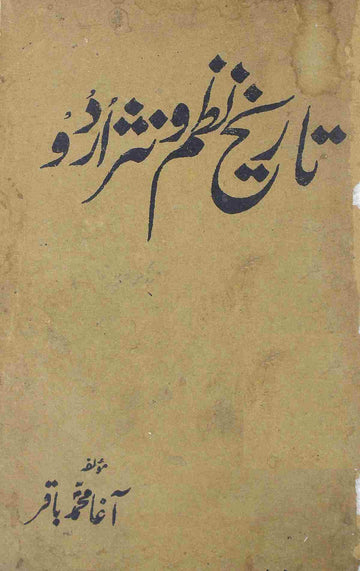 تاریخ نظم و نثر اُردُو
مؤلفہ
آغا محمدؐ باقر